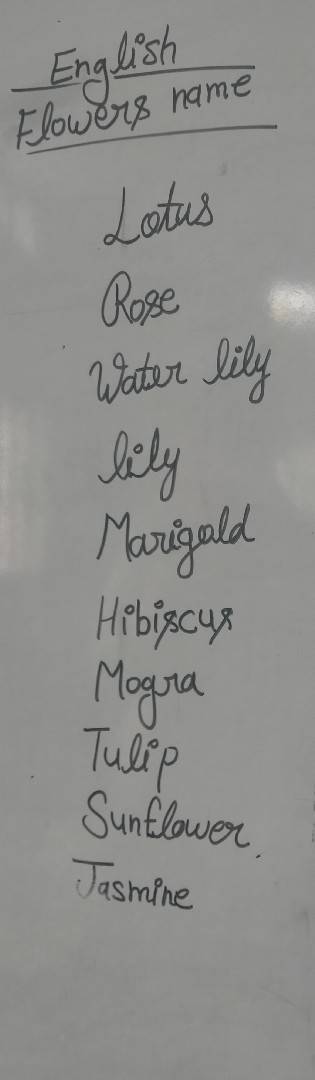 English
Flowers name
Lotus
Rose
Water lily
lily
Marigold
Hibiscus
Mogra
Tulip
Sunflower
Jasmine